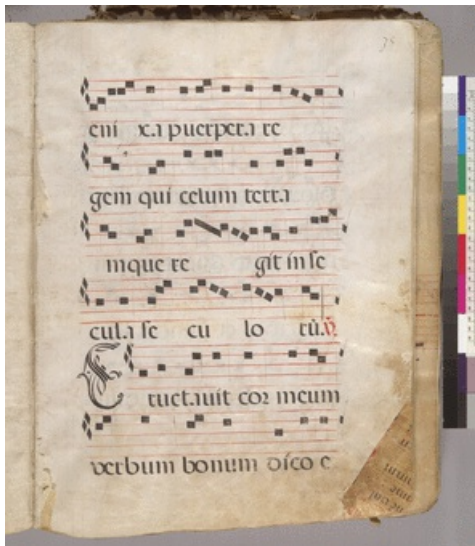 eni xa puerpera re
gem qui celum terra
mque re git in se
cula se cu lo rū. ℣.
Eructauit cor meum
verbum bonum dico e